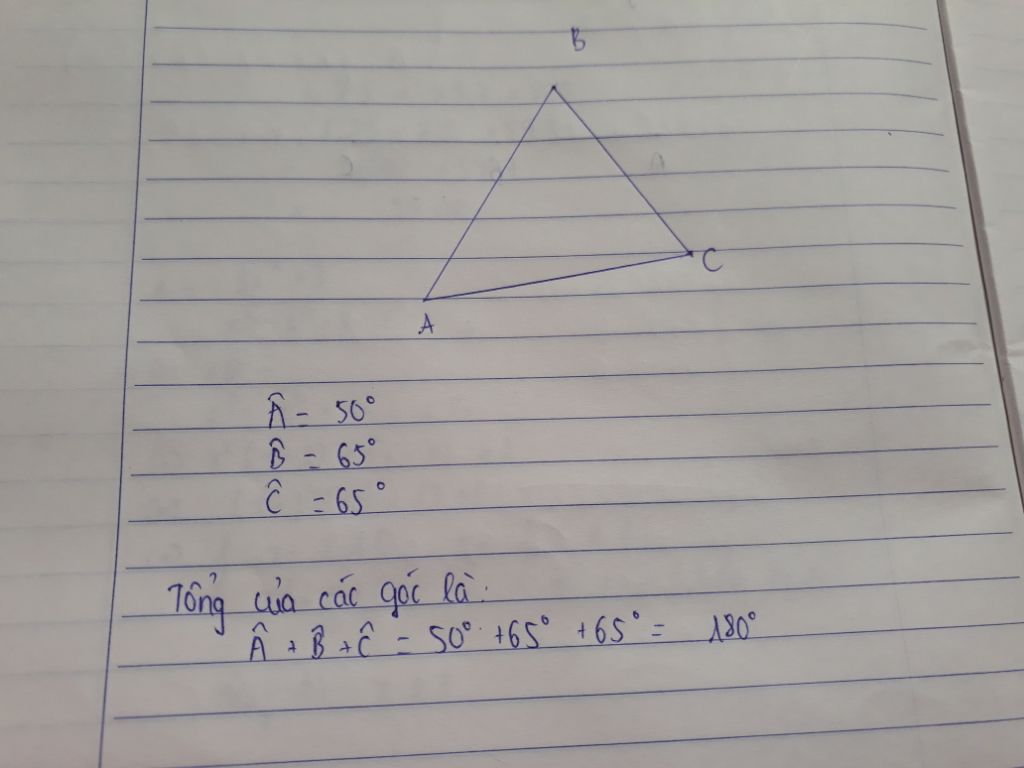 B
C
A
Â = 50°
B̂ = 65°
Ĉ = 65°
Tổng của các góc là:
Â + B̂ + Ĉ = 50° + 65° + 65° = 180°